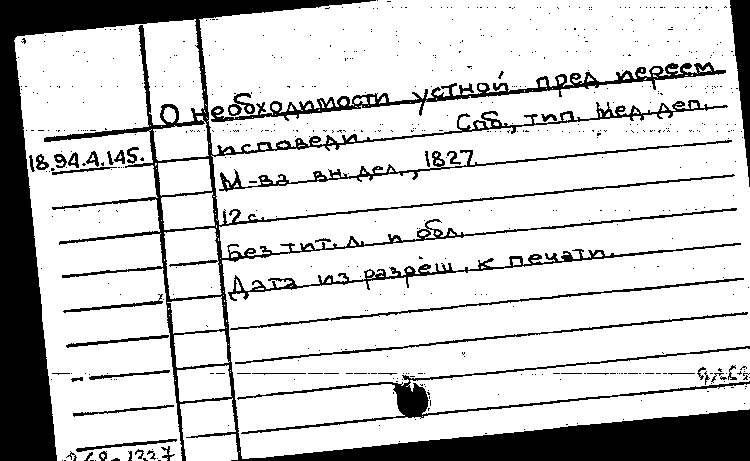 О необходимости устной пред иереем
исповеди. Спб., тип. Мед. деп.
18.94.4.145.
М-ва вн. дел., 1827.
12 с.
Без тит. л. и обл.
Дата из разреш. к печати.